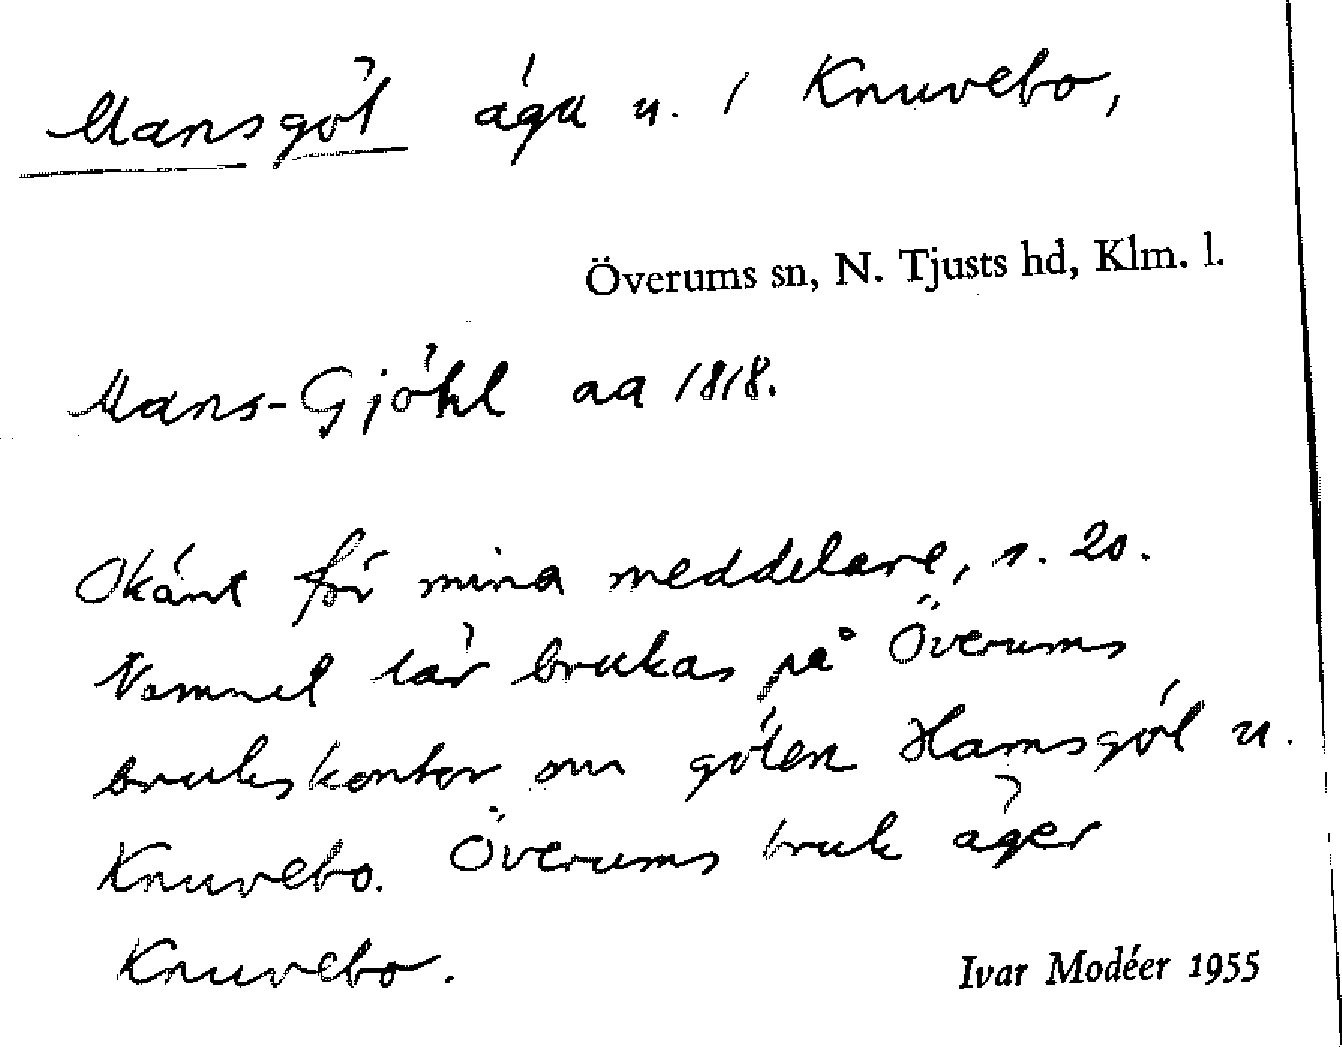 Mansgöl ägu u. / Knuvebo,
Överums sn, N. Tjusts hd, Klm. l.
Mans-Gjöhl aa 1818.
Okänt för mina meddelare, s. 20.
Namnet lär brukas på Överums
brukskontor om gölen Hamsgöl u.
Knuvebo. Överums bruk äger
Knuvebo.
Ivar Modéer 1955